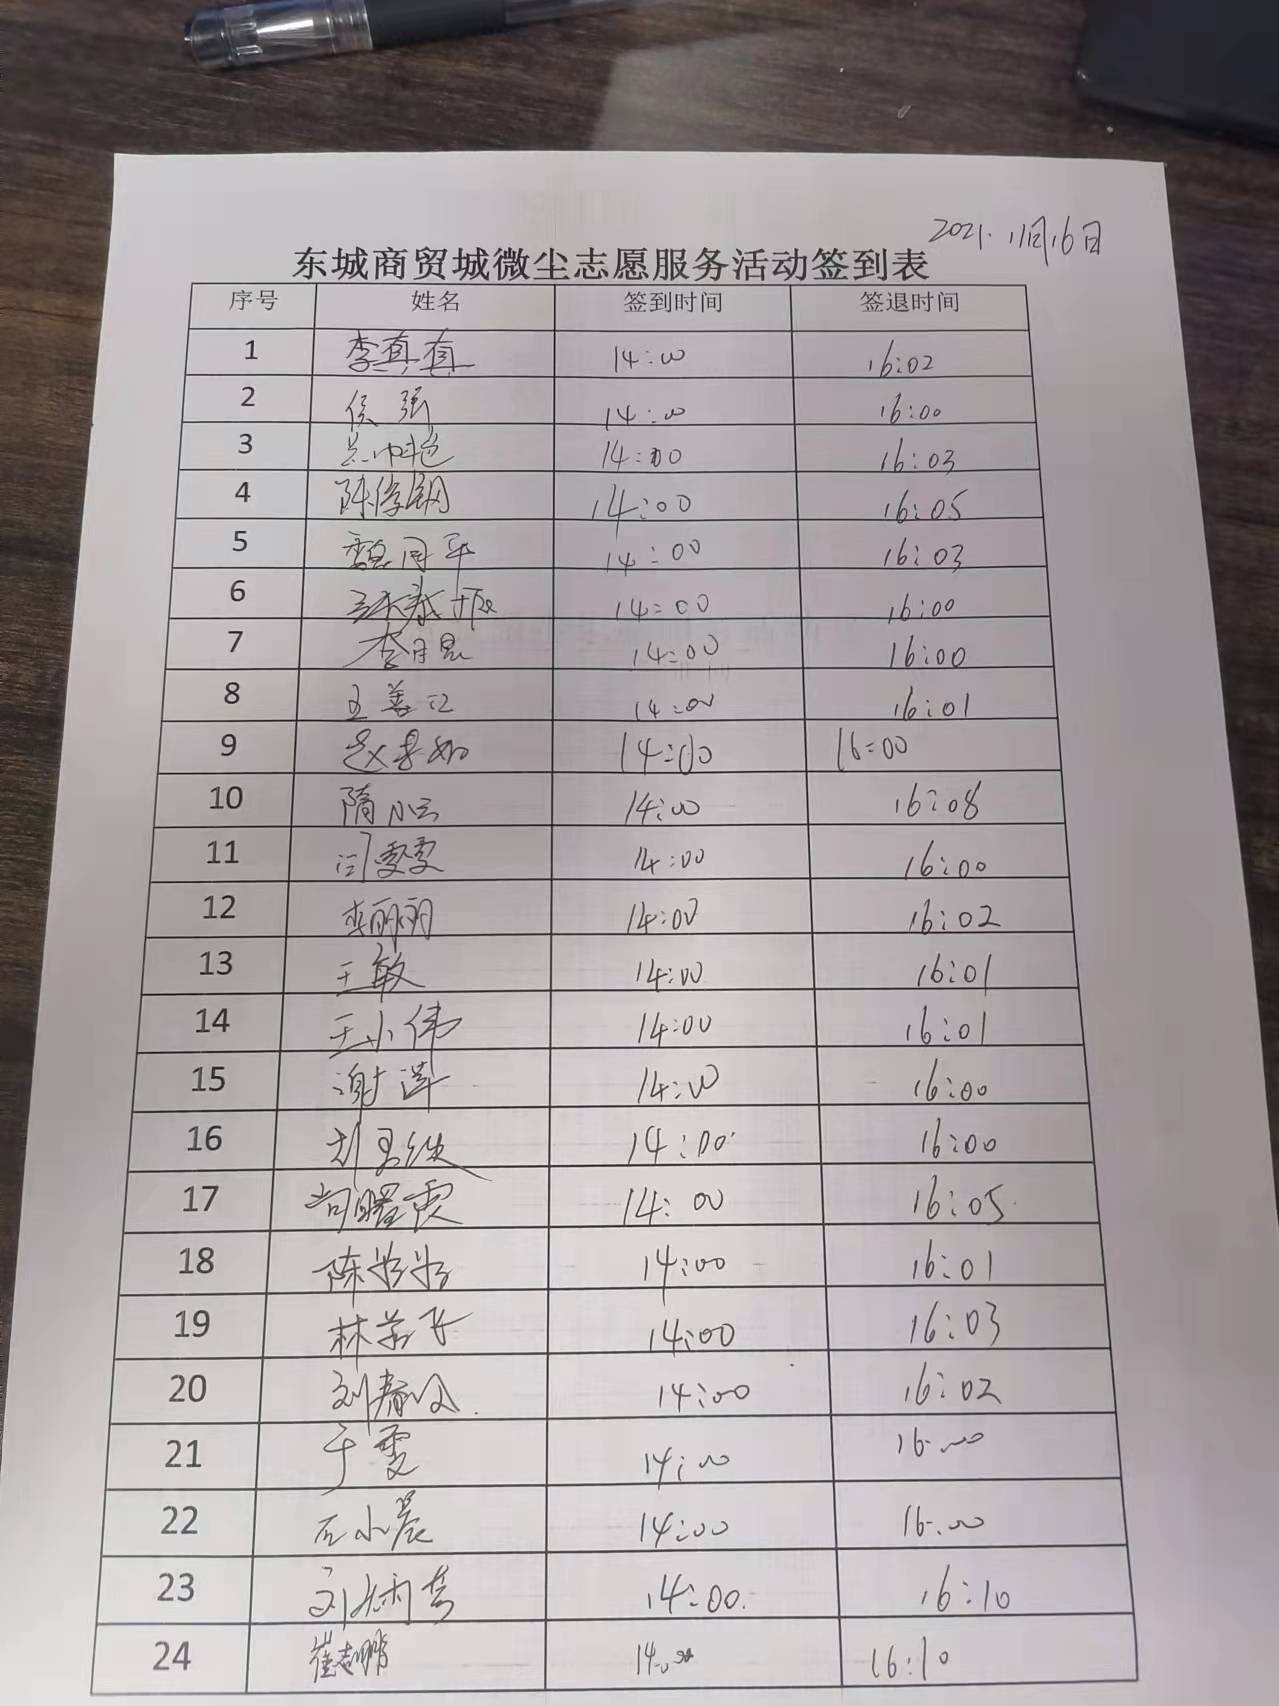 2021.11月16日
东城商贸城微尘志愿服务活动签到表
序号 姓名 签到时间 签退时间
1 李真真 14:00 16:02
2 侯强 14:00 16:00
3 14:00 16:03
4 陈俊钢 14:00 16:05
5 魏同平 14:00 16:03
6 14:00 16:00
7 李月昆 14:00 16:00
8 王善江 14:00 16:01
9 14:00 16:00
10 隋小云 14:00 16:08
11 闫雯雯 14:00 16:00
12 李丽丽 14:00 16:02
13 王敏 14:00 16:01
14 王小伟 14:00 16:01
15 谢莲 14:00 16:00
16 14:00 16:00
17 尚曜霞 14:00 16:05
18 陈彩彩 14:00 16:01
19 林若飞 14:00 16:03
20 刘春 14:00 16:02
21 于雯 14:00 16:00
22 石小晨 14:00 16:00
23 刘 14:00 16:10
24 崔志鹏 14:00 16:10